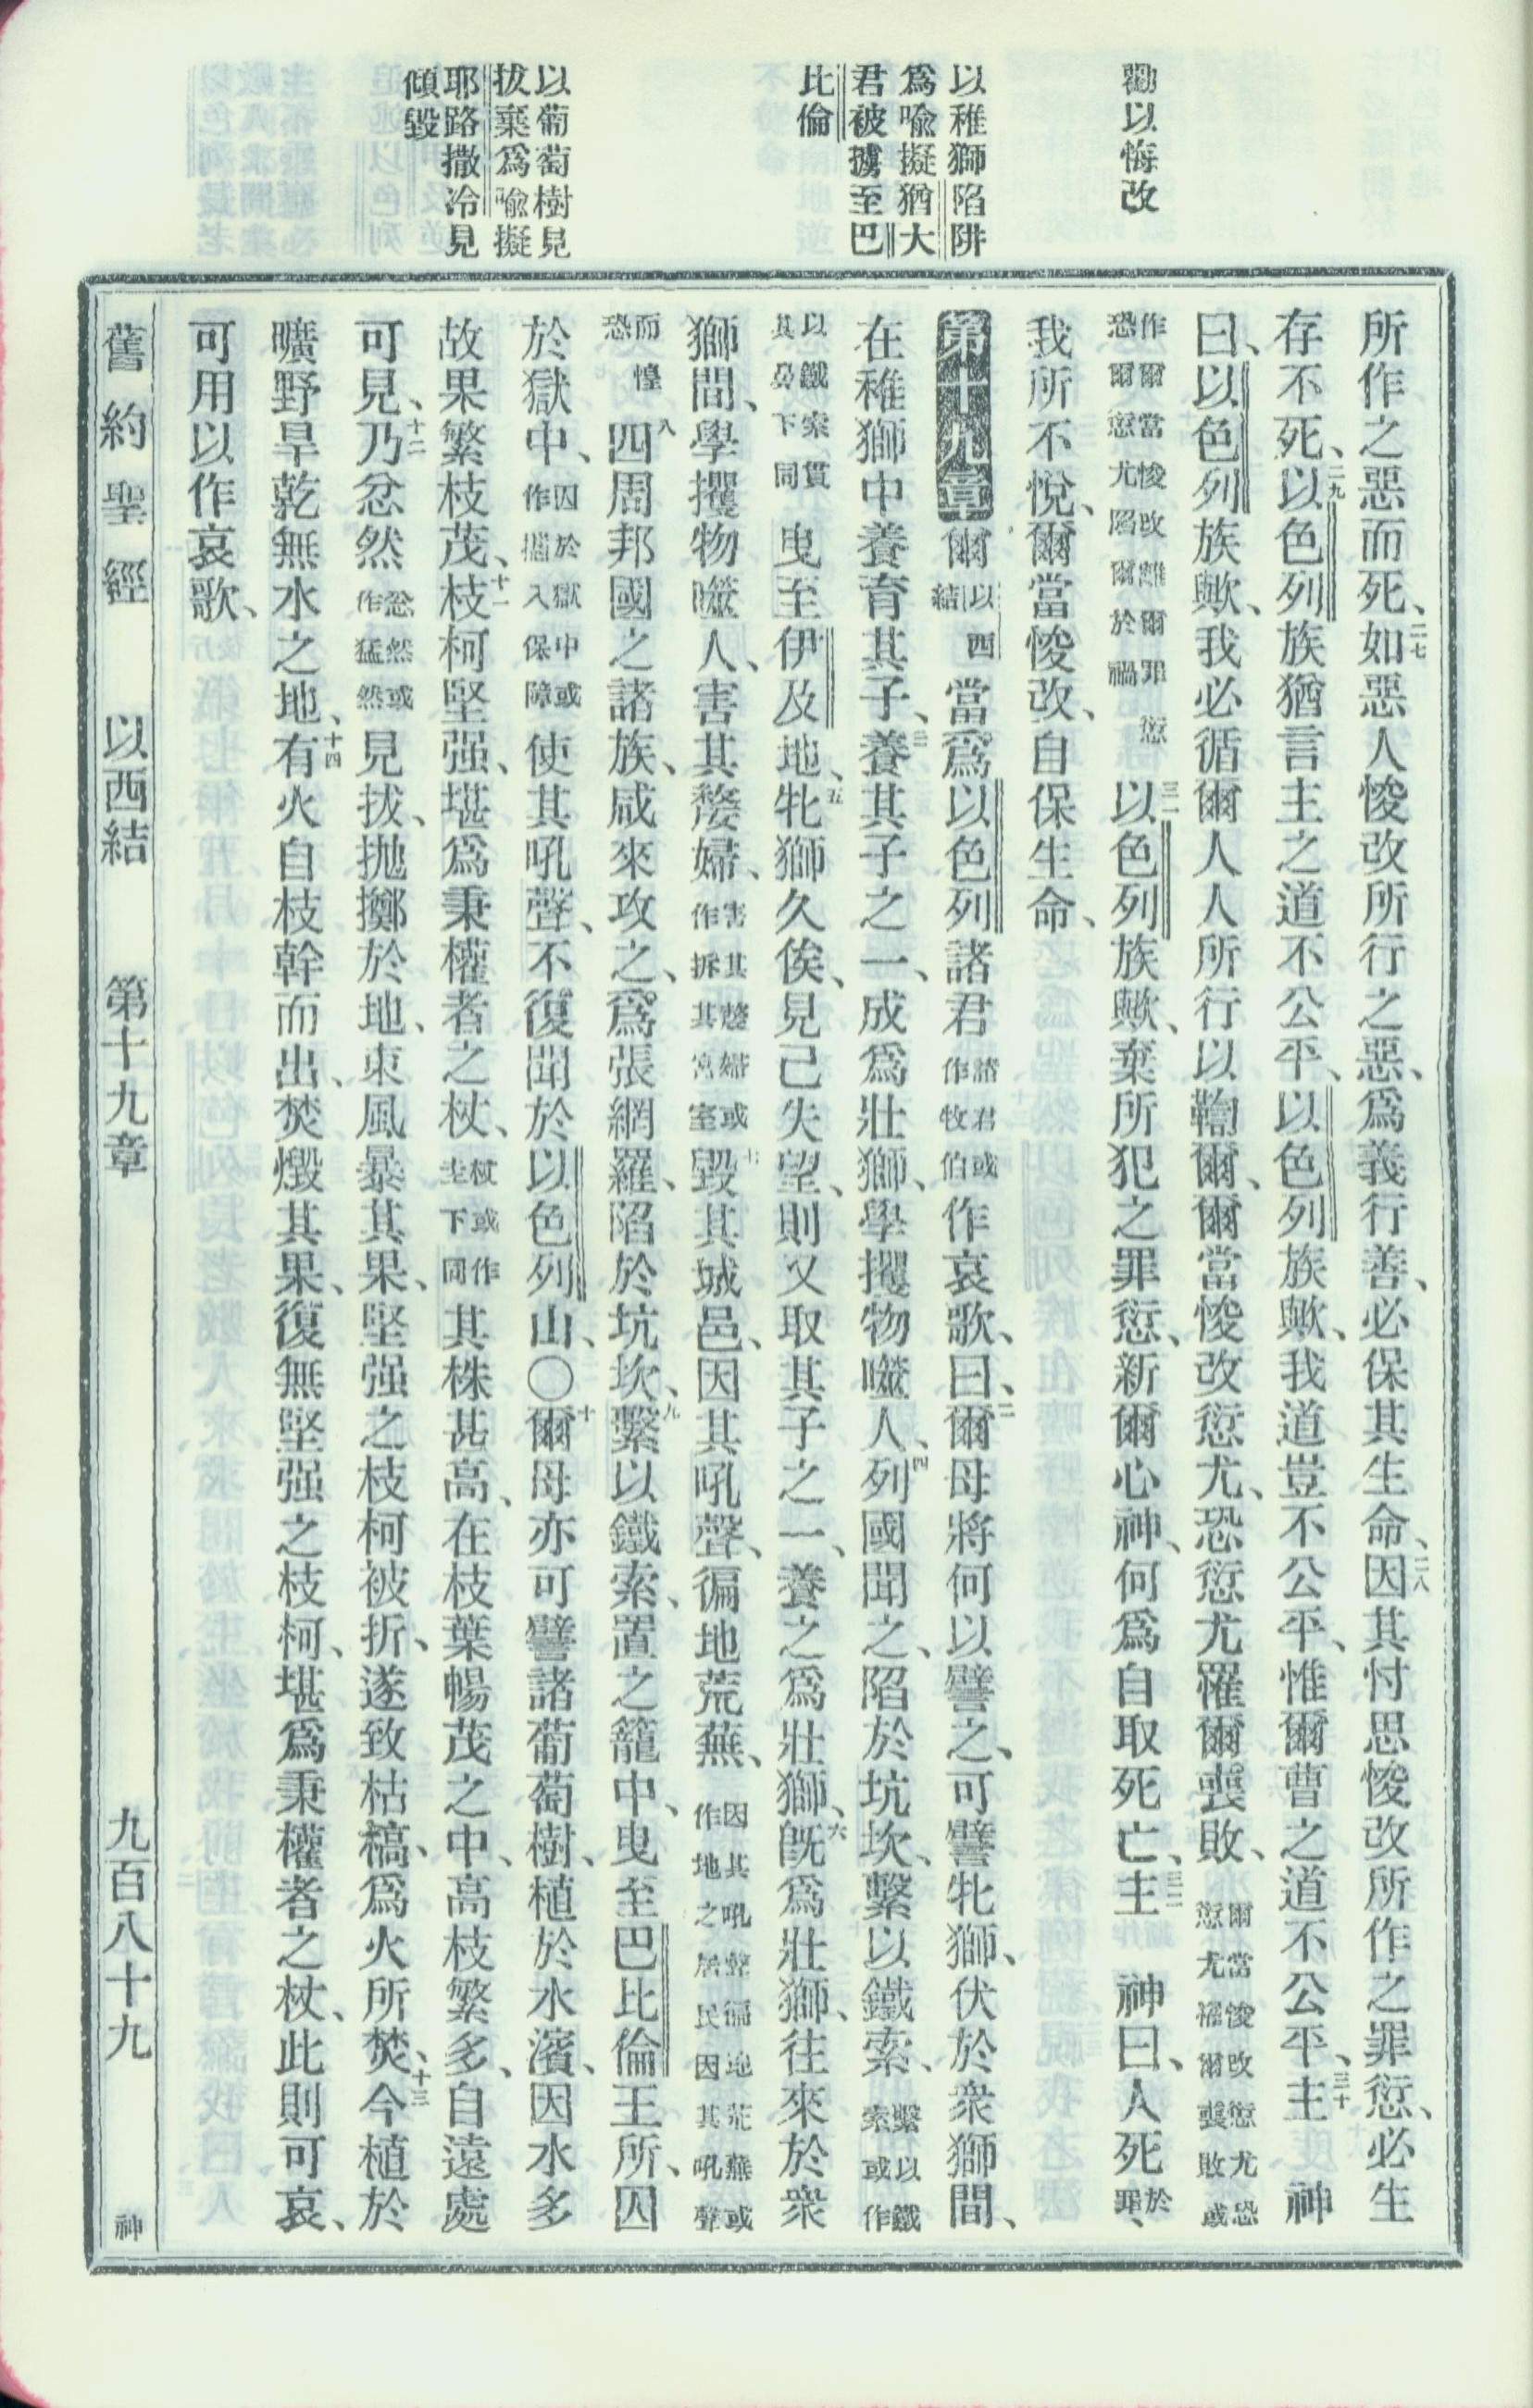 勸以悔改
以稚獅陷阱
爲喩擬猶大
君被擄至巴
比倫
以葡萄樹見
拔棄爲喩擬
耶路撒冷見
傾毀
所作之惡而死、二七如惡人悛改所行之惡、爲義行善、必保其生命、二八因其忖思悛改所作之罪愆、必生
存不死、二九以色列族猶言主之道不公平、以色列族歟、我道豈不公平、惟爾曹之道不公平、三十主 神
曰、以色列族歟、我必循爾人人所行以鞫爾、爾當悛改愆尤、恐愆尤罹爾喪敗、爾當悛改愆尤恐愆尤罹爾喪敗或
作爾當悛改離爾罪愆恐爾愆尤陷爾於禍 三一以色列族歟、棄所犯之罪愆、新爾心神、何爲自取死亡、三二主 神曰、人死於罪、
我所不悅、爾當悛改、自保生命、
第十九章 爾以西結當爲以色列諸君諸君或作牧伯作哀歌、曰、二爾母將何以譬之、可譬牝獅、伏於衆獅間、
在稚獅中養育其子、三養其子之一、成爲壯獅、學攫物噬人、四列國聞之、陷於坑坎、繫以鐵索、繫以鐵索或作
以鐵索貫其鼻下同 曳至伊及地、五牝獅久俟、見己失望、則又取其子之一、養之爲壯獅、六旣爲壯獅、往來於衆
獅間、學攫物噬人、害其嫠婦、害其嫠婦或作拆其宮室七毀其城邑、因其吼聲、徧地荒蕪、因其吼聲徧地荒蕪或作地之居民因其吼聲
而惶恐 八四周邦國之諸族、咸來攻之、爲張網羅、陷於坑坎、九繫以鐵索、置之籠中、曳至巴比倫王所、囚
於獄中、囚於獄中或作攜入保障使其吼聲、不復聞於以色列山、〇十爾母亦可譬諸葡萄樹、植於水濱、因水多
故果繁枝茂、十一枝柯堅强、堪爲秉權者之杖、杖或作圭下同其株甚高、在枝葉暢茂之中、高枝繁多、自遠處
可見、十二乃忿然忿然或作猛然見拔、抛擲於地、東風暴其果、堅强之枝柯被折、遂致枯槁、爲火所焚、十三今植於
曠野旱乾無水之地、十四有火自枝幹而出、焚燬其果、復無堅强之枝柯、堪爲秉權者之杖、此則可哀、
可用以作哀歌、
舊約聖經 以西結 第十九章 九百八十九 神